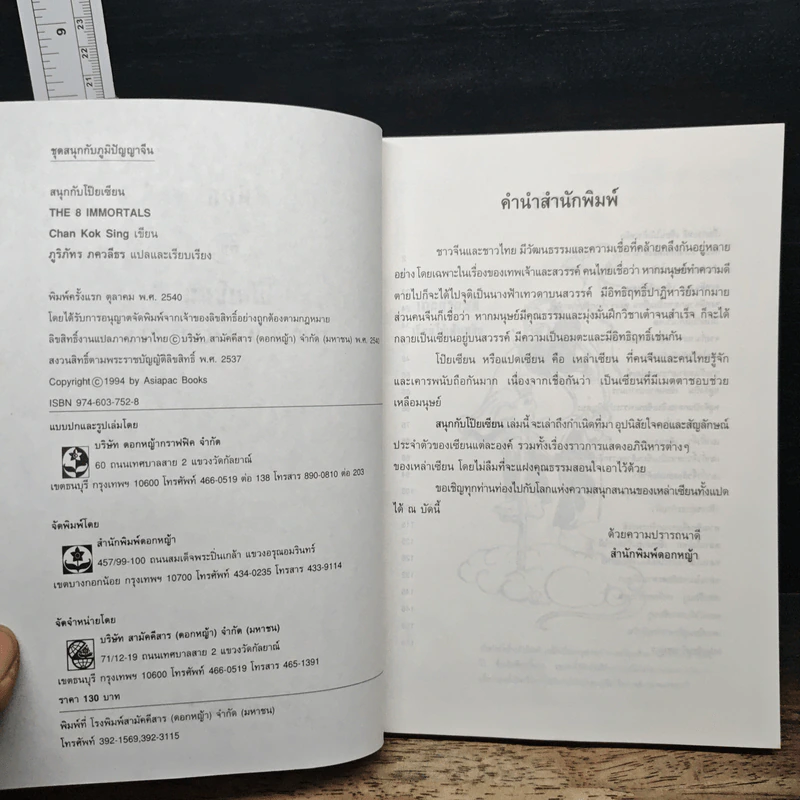 9
23
22
21
ชุดสนุกกับภูมิปัญญาจีน
สนุกกับโป๊ยเซียน
THE 8 IMMORTALS
Chan Kok Sing เขียน
ภูริภัทร ภควลีธร แปลและเรียบเรียง
พิมพ์ครั้งแรก ตุลาคม พ.ศ. 2540
โดยได้รับการอนุญาตจัดพิมพ์จากเจ้าของลิขสิทธิ์อย่างถูกต้องตามกฎหมาย
ลิขสิทธิ์งานแปลภาคภาษาไทย © บริษัท สามัคคีสาร (ดอกหญ้า) จำกัด (มหาชน) พ.ศ. 2540
สงวนสิทธิ์ตามพระราชบัญญัติลิขสิทธิ์ พ.ศ. 2537
Copyright © 1994 by Asiapac Books
ISBN 974-603-752-8
แบบปกและรูปเล่มโดย
บริษัท ดอกหญ้ากราฟฟิค จำกัด
60 ถนนเทศบาลสาย 2 แขวงวัดกัลยาณ์
เขตธนบุรี กรุงเทพฯ 10600 โทรศัพท์ 466-0519 ต่อ 138 โทรสาร 890-0810 ต่อ 203
จัดพิมพ์โดย
สำนักพิมพ์ดอกหญ้า
457/99-100 ถนนสมเด็จพระปิ่นเกล้า แขวงอรุณอมรินทร์
เขตบางกอกน้อย กรุงเทพฯ 10700 โทรศัพท์ 434-0235 โทรสาร 433-9114
จัดจำหน่ายโดย
บริษัท สามัคคีสาร (ดอกหญ้า) จำกัด (มหาชน)
71/12-19 ถนนเทศบาลสาย 2 แขวงวัดกัลยาณ์
เขตธนบุรี กรุงเทพฯ 10600 โทรศัพท์ 466-0519 โทรสาร 465-1391
ราคา 130 บาท
พิมพ์ที่ โรงพิมพ์สามัคคีสาร (ดอกหญ้า) จำกัด (มหาชน)
โทรศัพท์ 392-1569,392-3115
คำนำสำนักพิมพ์
ชาวจีนและชาวไทย มีวัฒนธรรมและความเชื่อที่คล้ายคลึงกันอยู่หลาย
อย่าง โดยเฉพาะในเรื่องของเทพเจ้าและสวรรค์ คนไทยเชื่อว่า หากมนุษย์ทำความดี
ตายไปก็จะได้ไปจุติเป็นนางฟ้าเทวดาบนสวรรค์ มีอิทธิฤทธิ์ปาฏิหาริย์มากมาย
ส่วนคนจีนก็เชื่อว่า หากมนุษย์มีคุณธรรมและมุ่งมั่นฝึกวิชาเต๋าจนสำเร็จ ก็จะได้
กลายเป็นเซียนอยู่บนสวรรค์ มีความเป็นอมตะและมีอิทธิฤทธิ์เช่นกัน
โป๊ยเซียน หรือแปดเซียน คือ เหล่าเซียน ที่คนจีนและคนไทยรู้จัก
และเคารพนับถือกันมาก เนื่องจากเชื่อกันว่า เป็นเซียนที่มีเมตตาชอบช่วย
เหลือมนุษย์
สนุกกับโป๊ยเซียน เล่มนี้ จะเล่าถึงกำเนิดที่มา อุปนิสัยใจคอและสัญลักษณ์
ประจำตัวของเซียนแต่ละองค์ รวมทั้งเรื่องราวการแสดงอภินิหารต่างๆ
ของเหล่าเซียน โดยไม่ลืมที่จะแฝงคุณธรรมสอนใจเอาไว้ด้วย
ขอเชิญทุกท่านท่องไปกับโลกแห่งความสนุกสนานของเหล่าเซียนทั้งแปด
ได้ ณ บัดนี้
ด้วยความปรารถนาดี
สำนักพิมพ์ดอกหญ้า